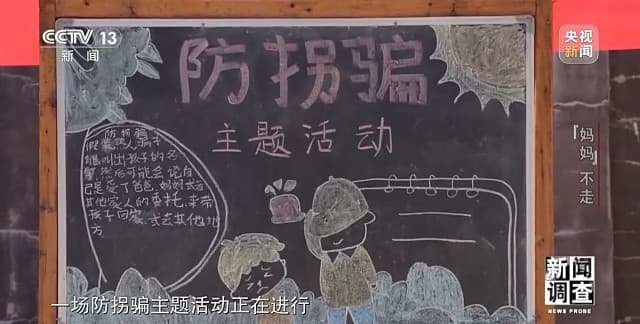 CCTV 13
新闻
央视
新闻
防拐骗
主题活动
防拐骗
假装熟人骗子
能叫出孩子的名
字然后可能会说自
己是受了爸爸、妈妈或者
其他家人的委托,来带
孩子回家,或去其他地
方
「妈妈」不走
新闻
调查
NEWS PROBE
一场防拐骗主题活动正在进行